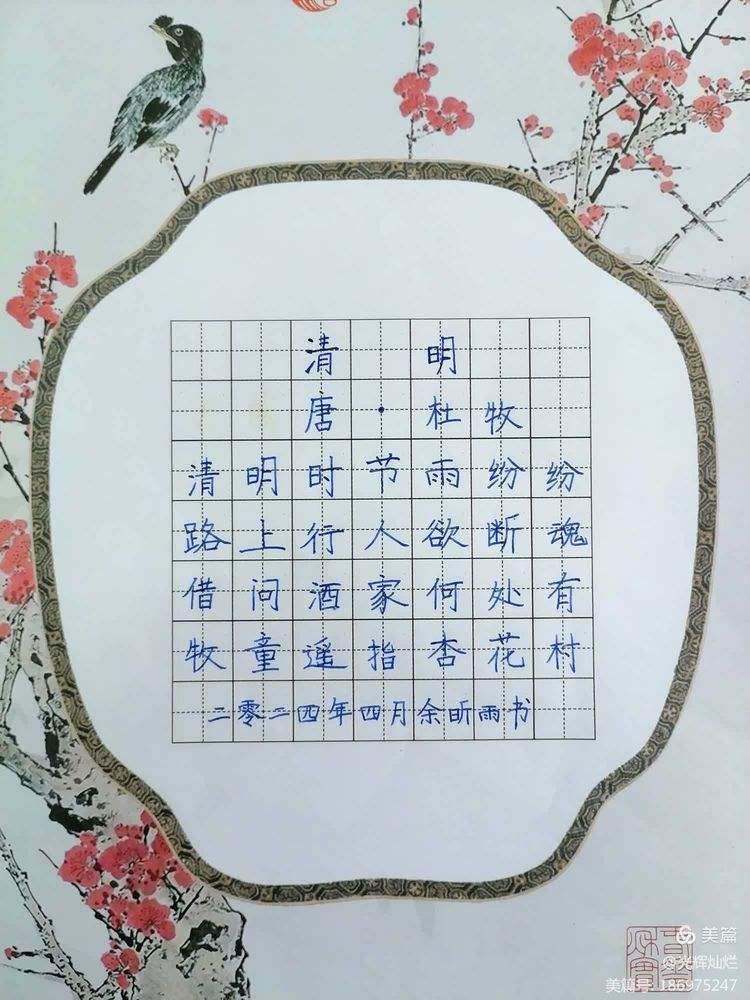 清明
唐·杜牧
清明时节雨纷纷
路上行人欲断魂
借问酒家何处有
牧童遥指杏花村
二零二四年四月余昕雨书
美篇
@光辉灿烂
美篇号 186975247